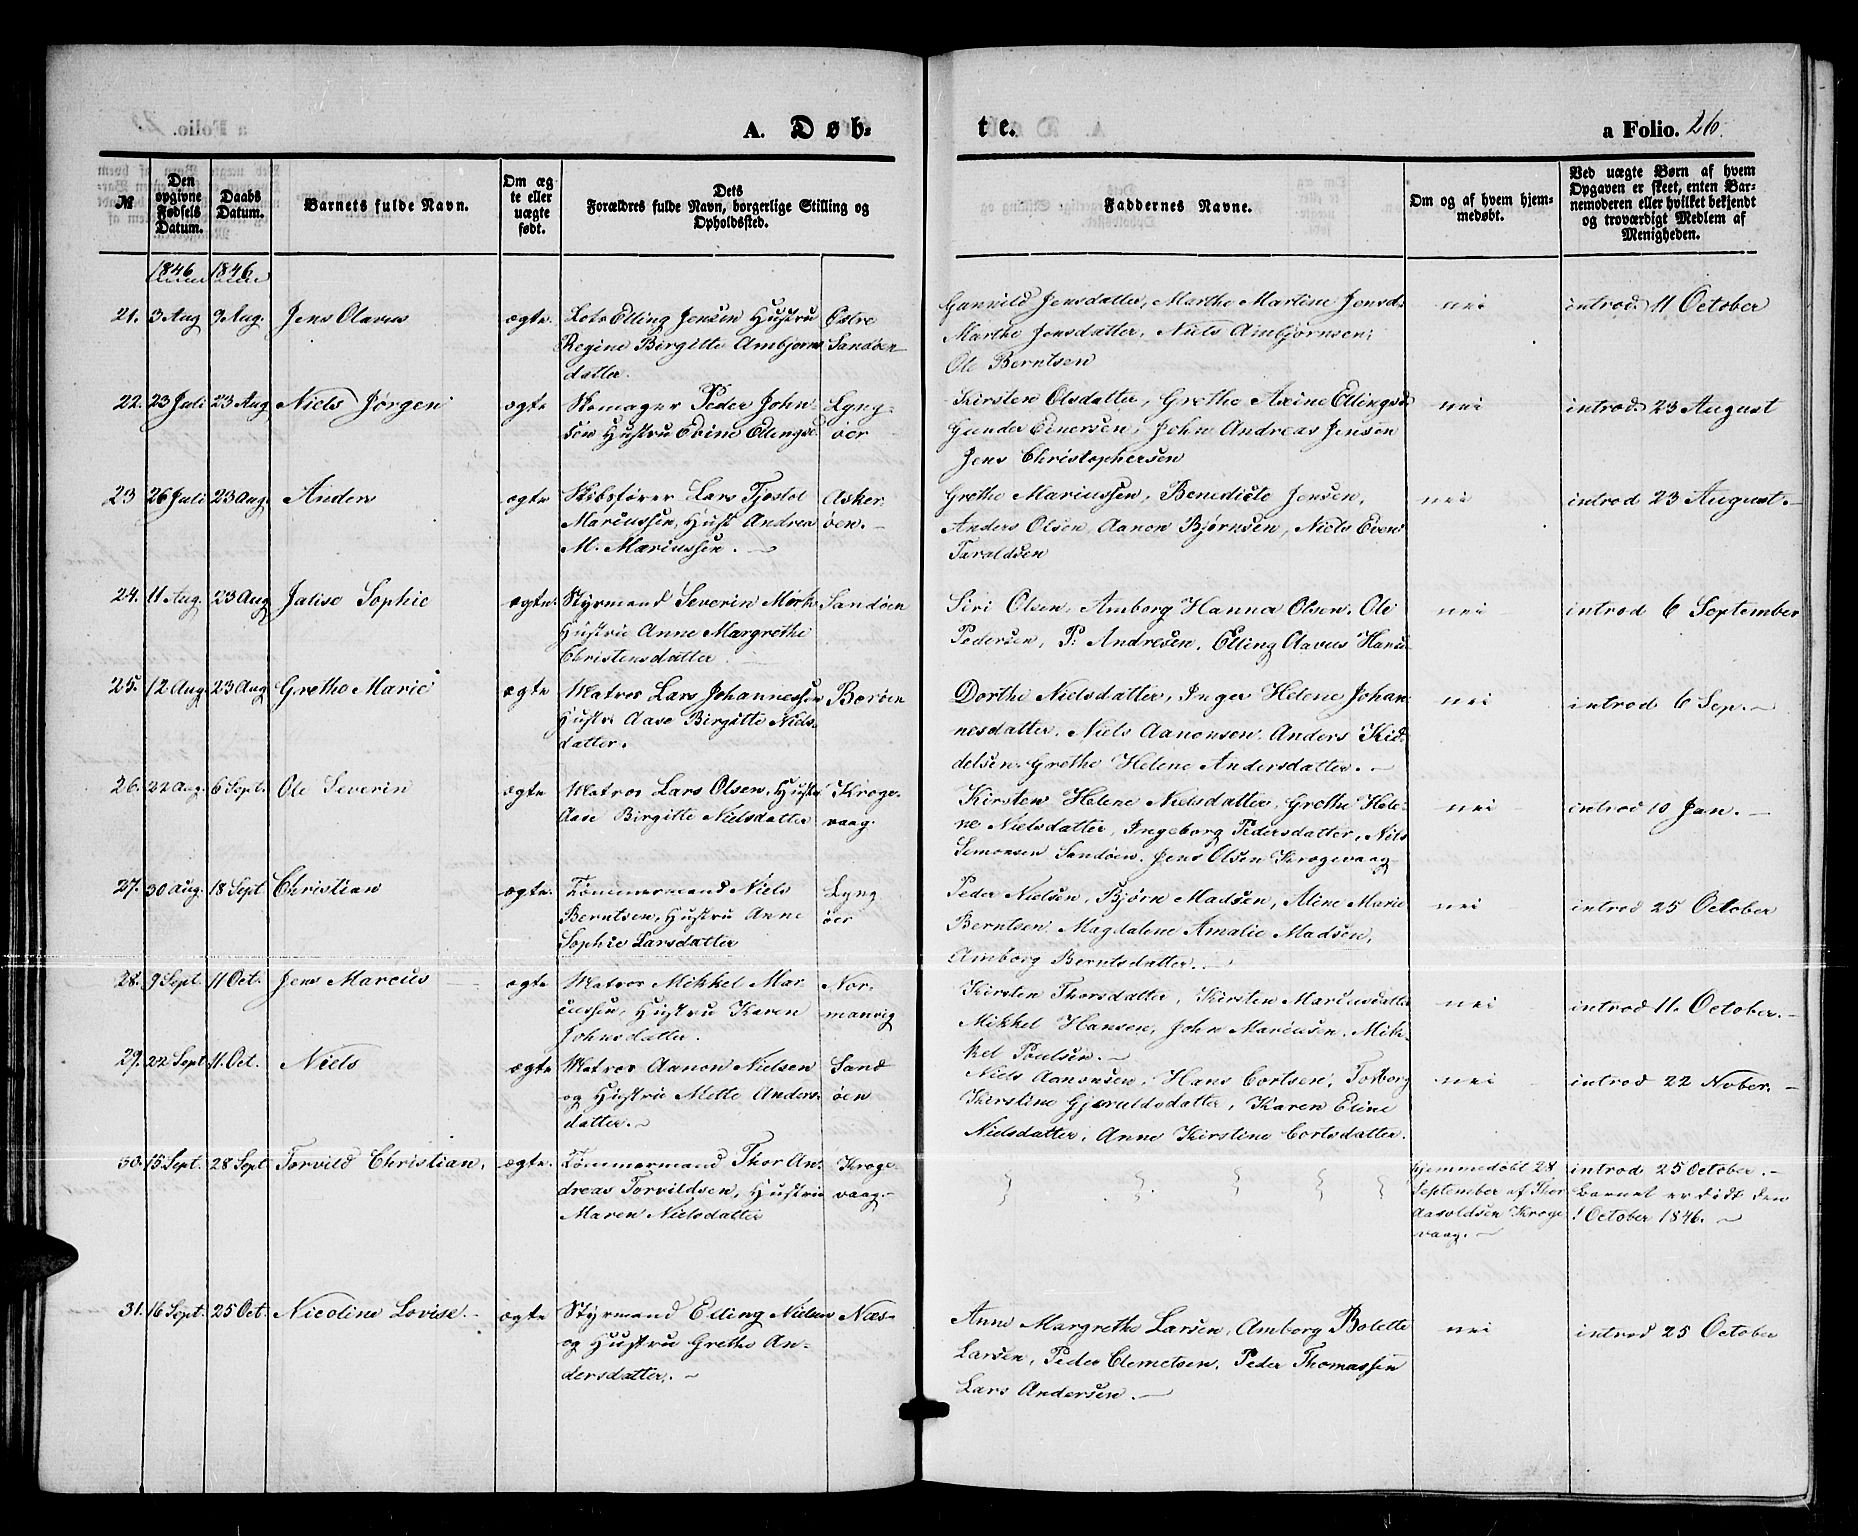 A. Døb-
te.
a Folio. 26.
№
Den opgivne Fødsels Datum.
Daabs Datum.
Barnets fulde Navn.
Om ægte eller uægte født.
Dets Forældres fulde Navn, borgerlige Stilling og Opholdssted.
Faddernes Navne.
Om og af hvem hjemmedøbt.
Ved uægte Børn af hvem Opgaven er skeet, enten Barnemoderen eller hvilket bekjendt og troværdigt Medlem af Menigheden.
1846 1846
21. 3 Aug 9 Aug. Jens Olavus ægte. Lots Elling Jensen Hustru Østre
Regine Birgitte Ambjørns Sandøen
datter.
Gunnild Jensdatter, Marthe Martine Jensd.
Marthe Jensdatter, Niels Ambjørnsen,
Ole Berntsen
nei
introd. 11 October
22. 23 Juli 23 Aug Niels Jørgen ægte Skomager Peder John- Lyng-
sen Hustru Edine Ellingsd. øer
Kirsten Olsdatter, Grethe Axine Ellingsd.
Gunder Einersen, John Andreas Jensen
Jens Christophersen
nei
introd. 23 August
23 26 Juli 23 Aug. Anders ægte Skibsfører Lars Tjøstol Asker
Mariussen, Hust Andrea øen.
M. Mariussen.
Grethe Mariussen, Benedicte Jensen,
Anders Olsen, Aanon Bjørnsen, Niels Even
Taraldsen
nei
introd 23 August.
24. 11 Aug. 23 Aug Jalise Sophie ægte. Styrmand Severin Mørk Sandøen
Hustru Anne Margrethe
Christensdatter
Siri Olsen, Amborg Hanna Olsen, Ole
Pedersen, P. Andresen, Elling Olavus Hans.
nei
introd 6 September
25. 12 Aug 23 Aug Grethe Marie ægte Matros Lars Johannessen Borøen
Hustr. Aase Birgitte Niels-
datter.
Dorthe Nielsdatter, Inger Helene Johan-
nesdatter, Niels Aanonsen, Anders Kid-
delsen, Grethe Helene Andersdatter.
nei
introd 6 Sep.
26. 22 Aug. 6 Sept. Ole Severin ægte Matros Lars Olsen, Hustru Kroge-
Aase Birgitte Nielsdatter vaag.
Kirsten Helene Nielsdatter, Grethe Hele-
ne Nielsdatter, Ingeborg Pedersdatter, Nils
Simonsen Sandøen, Jens Olsen Krogevaag
nei
introd 10 Jan.
27. 30 Aug. 18 Sept Christian ægte. Tømmermand Niels Lyng
Berntsen, Hustru Anne øer
Sophie Larsdatter
Peder Nielsen, Bjørn Madsen, Aline Marie
Berntsen, Magdalene Amalie Madsen,
Amborg Berntsdatter.
nei
introd 25 October
28. 9 Sept. 11 Oct. Jens Marcus ægte Matros Mikkel Mar Nor-
cussen, Hustru Karen manvig
Johnsdatter.
Kirsten Thorsdatter, Kirsten Marcusdatter
Mikkel Hansen, John Mariusen, Mik-
kel Poulsen.
nei
introd 11. October.
29. 22 Sept 11. Oct. Niels ægte Matros Aanon Nielsen Sand
og Hustru Mette Anders- øen
datter.
Niels Aanonsen, Hans Cortsen, Torborg
Kirstine Gjeruldsdatter, Karen Eline
Nielsdatter, Anne Kirstine Cortsdatter.
nei
introd 22 Nober.
30. 15 Sept. 28 Sept Torvild Christian. ægte. Tømmermand Thor An- Kroge-
dreas Torvildsen, Hustru vaag.
Maren Nielsdatter
hjemmedøbt 28
September af Thor
Aasoldsen Kroge
vaag.
introd 25 October.
Barnet er dødt den
1 October 1846.
31. 16 Sept. 25 Oct. Nicoline Lovise. ægte Styrmand Elling Nielsen Næs
og Hustru Grethe An-
dersdatter.
Anne Margrethe Larsen, Amborg Bolette
Larsen, Peder Clemetsen, Peder Thomassen
Lars Andersen.
nei
introd 25 October